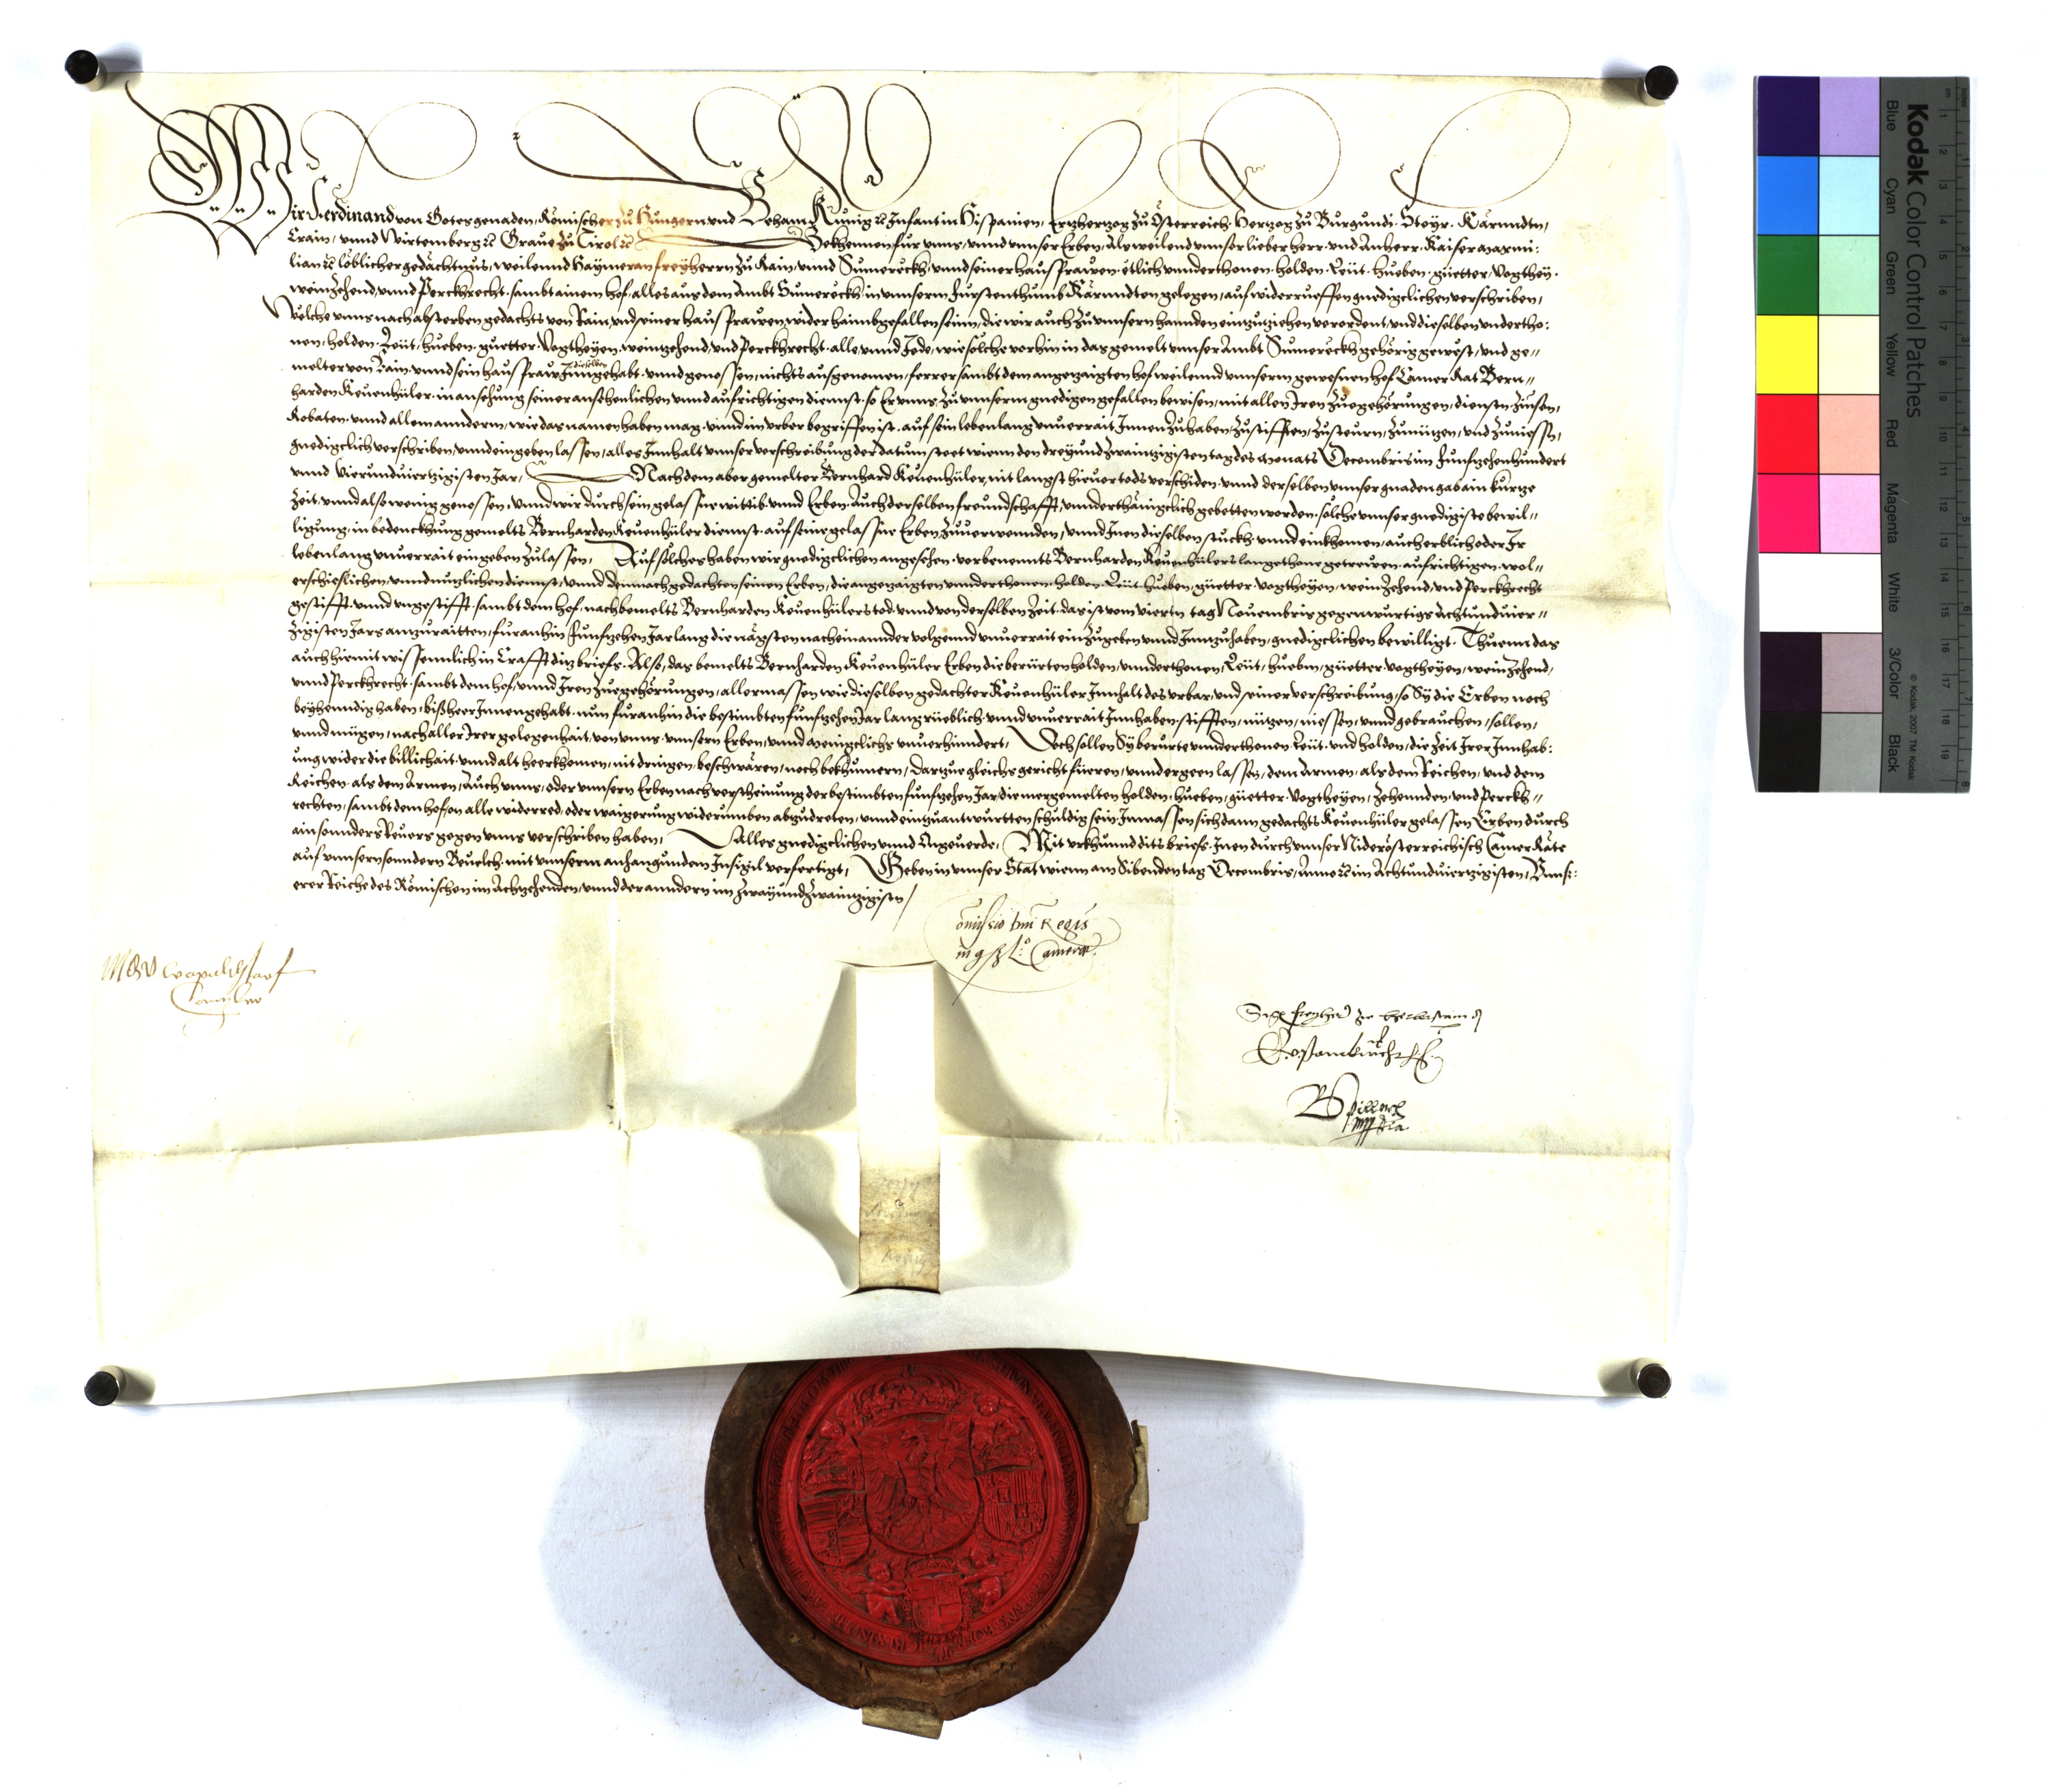 Wir Ferdinand von Gotes genaden, Römischer zu Hungern vnd Behaim Künig ꝛc Infant in Hispanien, Ertzhertzog zu Österreich, Hertzog zu Burgundi, Steyr, Kärnndtn,
Crain, vnnd Wirtemberg ꝛc Graue zu Tirol ꝛc Bekhennen für vnns, vnnd vnnser Erben, Als weilend vnnser lieber herr vnd Anherr Kaiser Maxmi:
lian ꝛc löblicher gedächtnus, weilennd Haymeran freyherrn zu Rain, vnnd Sumereckh, vnnd seiner hausfrawen, etlich vnnderthonen, holden, Leüt, hueben, güetter, Vogthey,
weinzehend, vnnd Perckhrecht, sambt ainem hof, alles aus dem Ambt Sumereckh in vnnserm Furstenthumb Kärnndten gelegen, auf widerrueffen gnedigclichen verschriben,
Welche vnns nach absterben gedachts von Rain, vnd seiner hausfrawen, wider haimbgefallen seinn, die wir auch zu vnnsern hannden einzutziehen verordent, vnd dieselben vndertho:
nen, holden, Leüt, hueben, guetter, Vogtheyen, weintzehend, vnd Perckhrecht, alle vnnd Jede, wie solche vorhin in das gemelt vnnser Ambt Sumereckh gehörig gewest, vnd ge=
melter von Rain, vnnd sein hausfraw dieselben Inngehabt, vnnd genossen, nichts ausgenomen, ferrer sambt dem angezaigten hof weilennd vnnserm gewesnen hof Camer Rat Bern=
harden Keuenhüler, in ansehung seiner ansehenlichen vnnd aufrichtigen diennst, so Er vnns zu vnnserm gnedigen gefallen bewisen, mit allen Iren zuegehörungen, diensten, Zinsen,
Robaten, vnnd allem anndern, wie das namen haben mag, vnnd im vrber begriffen ist, auf sein lebenlang vnuerrait Innen zuhaben, zustifften, zusteurn, zunützen, vnd zuniessn,
gnedigclich verschriben, vnnd eingeben lassen, alles Innhalt vnnser verschreibung der datum steet wienn den dreyundzwaintzigisten tag des monats Decembris im Funfzehenhundert
vnnd Vierundviertzigisten Jar, Nachdem aber gemelter Bernhard Keuenhüler, nit langst hieuor tods verschiden, vnnd derselben vnnser gnadengab ain kurtze
Zeit, vnnd also wenig genossen, vnnd wir durch sein gelassne wittib vnnd Erben, Auch derselben freundschafft, vnnderthänigclich gebetten worden, solche vnnser gnedigiste bewil=
ligung, in bedenckhung gemelts Bernharden Keuenhüler diennst, auf seine gelassne Erben zuuerwennden, vnnd Inen dieselben stuckh, vnnd einkhomen, auch erblich oder Ir
lebenlang vnuerrait eingeben zulassen, Auf solches haben wir gnedigclichen angesehen, vorbenennts Bernharden Keuenhülers langethone getrewen, aufrichtigen, wol=
erschieslichen, vnnd nutzlichen diennst, vnnd demnach gedachten seinen Erben, die angezaigten vnnderthonen, holden, Leüt, hueben, güetter, Vogtheyen, weinzehend, vnd Perckhrecht
gestifft, vnnd vngestifft, sambt dem hof, nach bemelts Bernharden Keuenhülers tod, vnnd von derselben Zeit, das ist vom viertn tag Nouembris gegenwurtigs Achtunduier=
zigisten Jars anzuraitten, füranhin Funfzehen Jar lang die nägsten nacheinannder volgennd vnuerrait einzugeben vnnd Innzuhaben, gnedigclichen bewilligt. Thuenn das
auch hiemit wissenntlich in Crafft ditz briefs. Also, das bemelts Bernharden Keuenhüler Erben die berürten holden, vnnderthonen, Leüt, huebm, güetter, Vogtheyen, weinzehend,
vnnd Perckhrecht, sambt dem hof, vnnd Iren zuegehörungen, allermassen wie dieselben gedachter Keuenhüler Innhalt des vrbar, vnd seiner verschreibung, so Sy die Erben noch
beyhenndig haben, bißheer Innengehabt, nun füranhin die bestimbten funfzehen Jar lang rüeblich, vnnd vnuerrait Innhaben, stifften, nützen, niessen, vnnd gebrauchen, sollen,
vnnd mügen, nach aller Irer gelegenhait, von vnns, vnnsern Erben, vnnd menigclichs vnuerhinndert, Doch sollen Sy berürte vnnderthonen, Leüt, vnd holden, die Zeit Irer Innhab:
ung wider die billichait, vnnd alt heerkhomen, nit dringen, beschwären, noch bekhumern, Dartzue gleichs gericht füeren, vnnd ergeen lassen, dem Armen, als dem Reichen, vnd dem
Reichen, als dem Armen, Auch vnns, oder vnnsern Erben nach verscheinung der bestimbten funfzehen Jar, die mergemelten holden, hueben, güetter, Vogtheyen, Zehennden, vnd Perckh=
rechten, sambt dem hof, on alle widerred, oder waigerung widerumben abzudreten, vnnd eintzuantwurtten schuldig sein, Inmassen sich dann gedachts Keuenhüler gelassen Erben durch
ain sonnders Reuers gegen vnns verschriben haben, Alles gnedigclichen vnnd Ongeuerde, Mit vrkhunnd dits briefs, Inen durch vnnser Niderösterreichisch Camer Räte
auf vnnsern sonndern Beuelch, mit vnnserm anhangundem Insigl verfertigt, Geben in vnnser Stat wienn am Sibenden tag Decembris, Anno ꝛc im Achtunduiertzigisten, Vnns:
erer Reiche des Römischen im Achzehenden, vnnd der anndern im zwayundzwaintzigisten /
Comissio dni Regis
in Camera.
Canzler
Sigm freyherr zu Herberstain